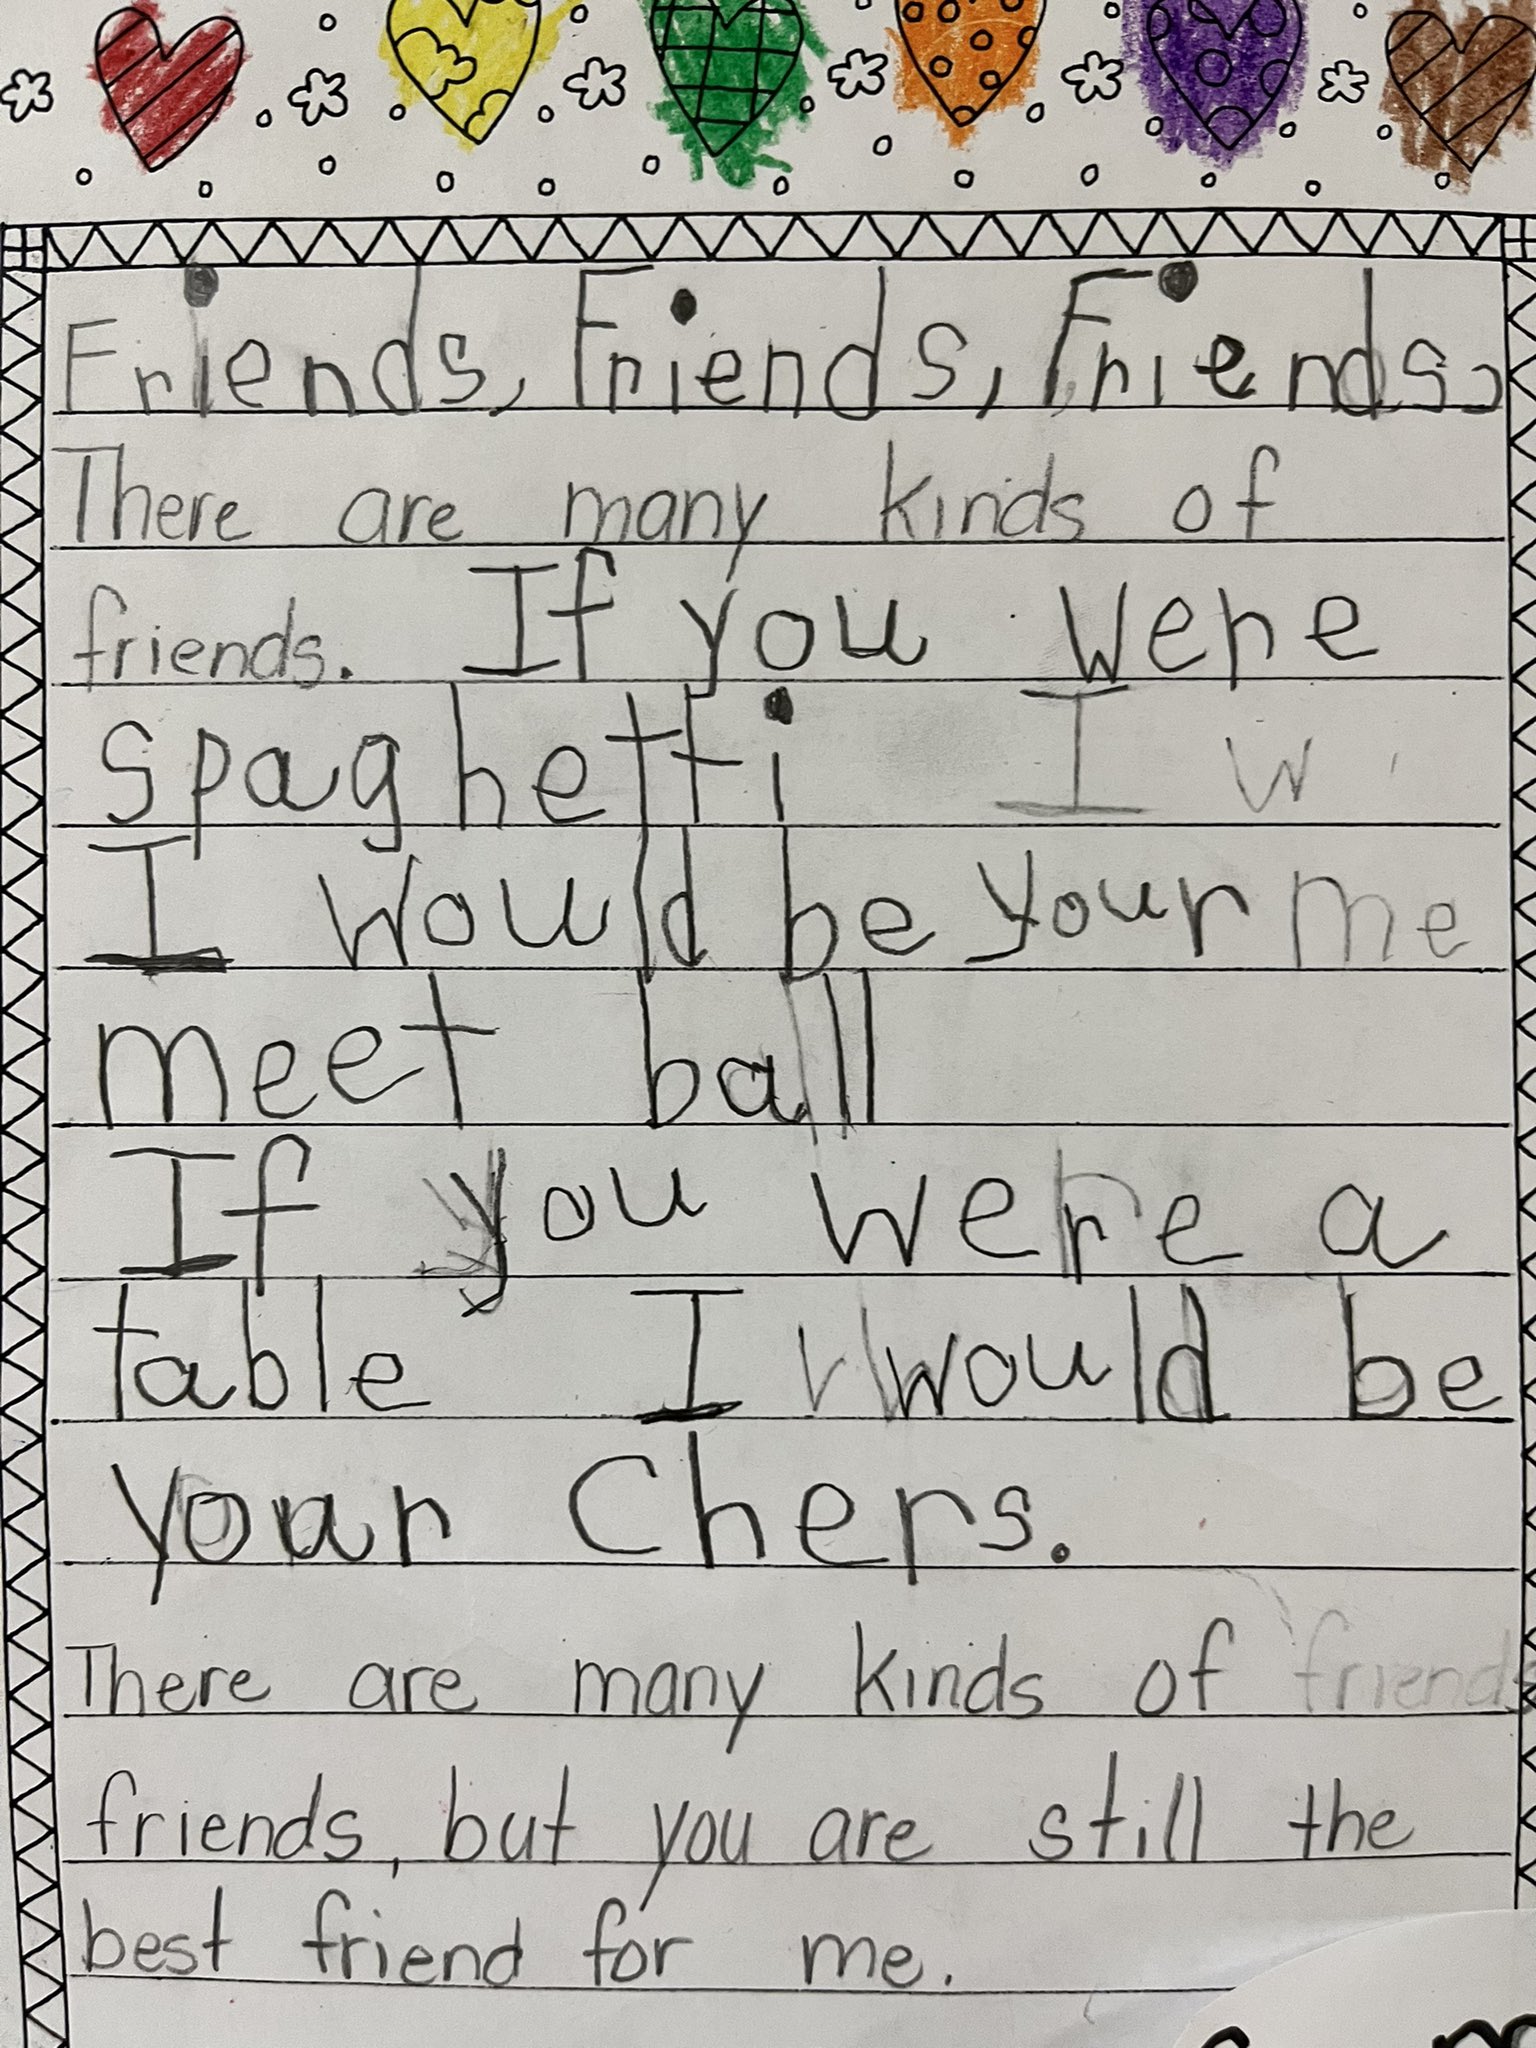 Friends, Friends, Friends,
There are many kinds of
friends. If you were
spaghetti I w
I would be your me
meet ball
If you were a
table I would be
your Chers.
There are many kinds of friends
friends, but you are still the
best friend for me.